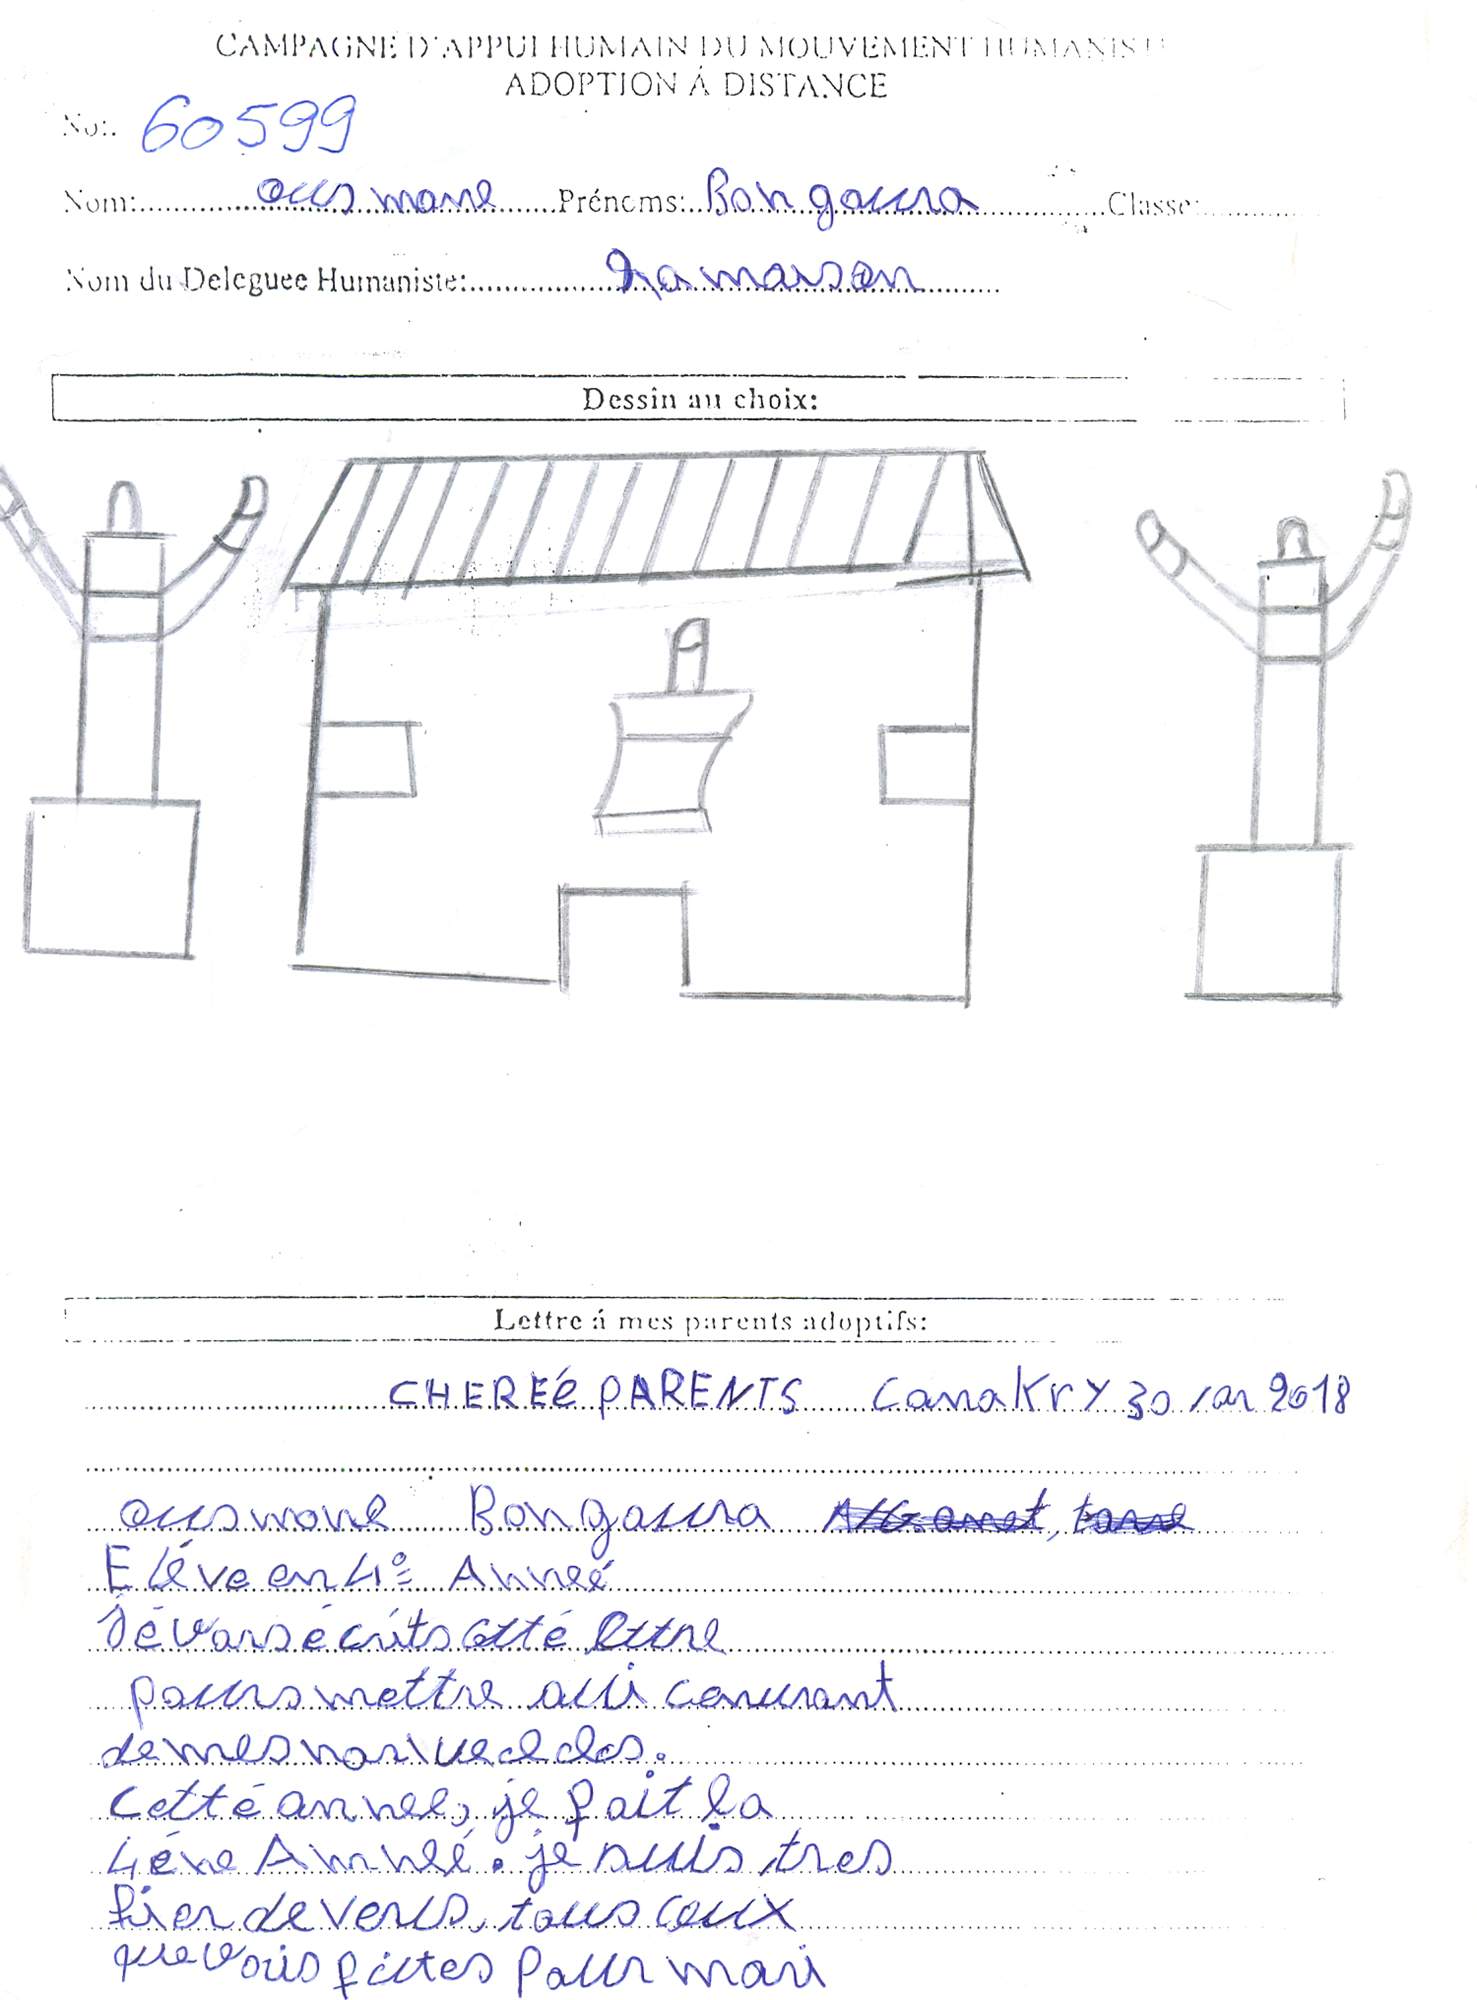 CAMPAGNE D'APPUI HUMAIN DU MOUVEMENT HUMANISTE
ADOPTION Á DISTANCE
No:. 60599
Nom: ousmane Prénoms: Bongoura Classe:
Nom du Deleguee Humaniste: maison
Dessin au choix:
Lettre á mes parents adoptifs:
CHEREé PARENTS Canakry 30 2018
ousmane Bongoura
Eléve en 4e Anneé
écrits cetté lettre
pours mettre aui courant
de mes
Cetté annee, je fait la
4éne Anneé. je suis tres
fier de vous, tous ceux
que vous faites pour moi